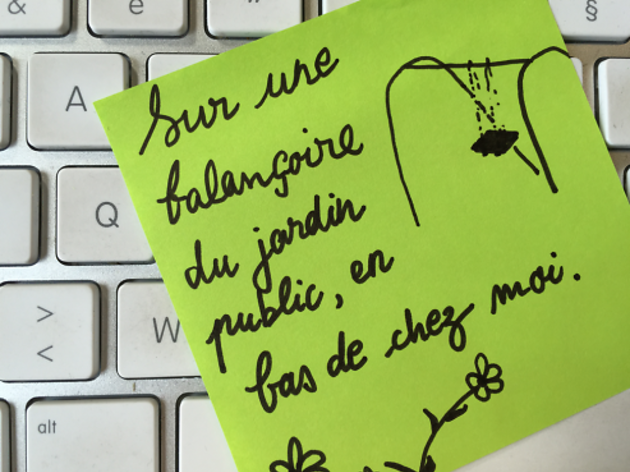 & é §
A
Sur une
balançoire
Q
du jardin
public, en
>
<
W
bas de chez moi.
alt